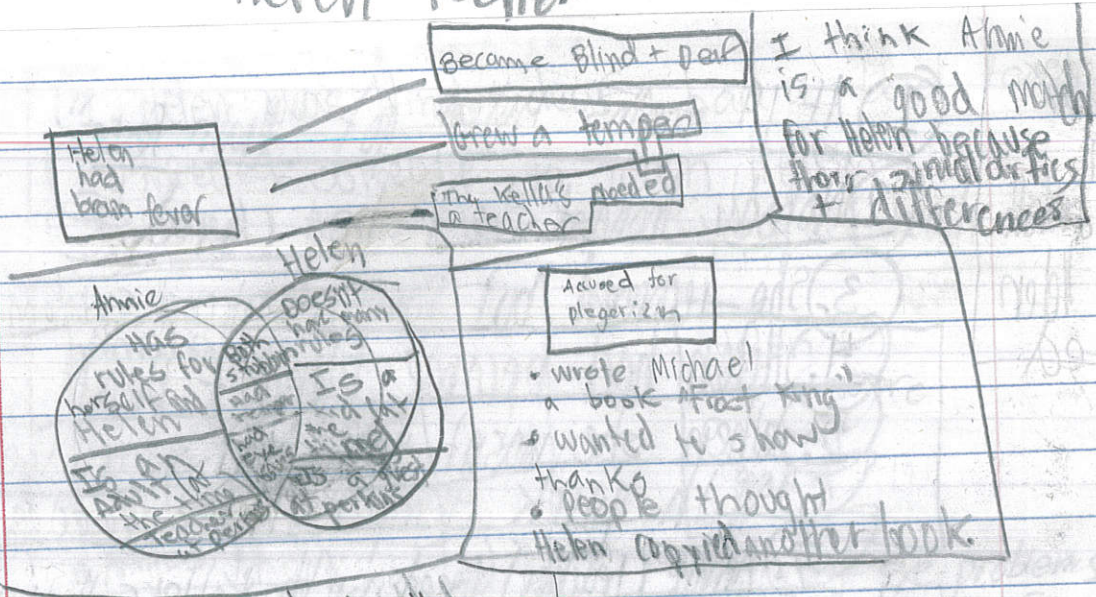 Helen
Became Blind + Deaf
Grew a temper
The Kellas needed
a teacher
Helen
had
brain fever
I think Annie
is a good match
for Helen because
their similarities
+ differences
Annie
Has
rules for
herself and
Helen
Is an
adult at
the time
Teacher
at perkins
Both
stubborn
had
temper
had
eye
Helen
Doesn't
have many
rules
Is a
kid at
the
time
Is a
at perkins
Accused for
plegerizm
• wrote Michael
a book "Frost King"
• wanted to show
thanks
• People thought
Helen coppied another book.